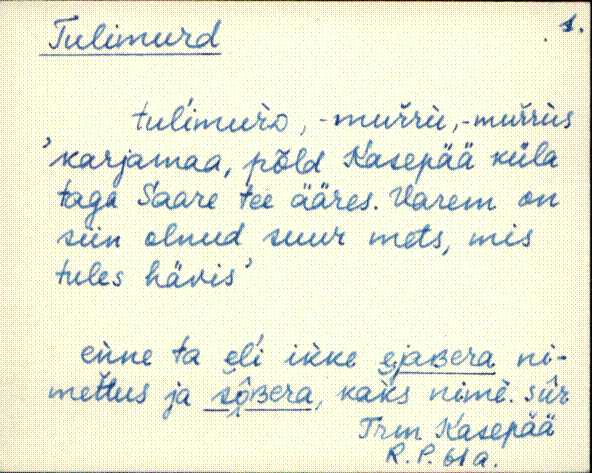 Tulimurd
1.
tuĺimuřᴅ, -muřrù, -muřrùs
'karjamaa, põld Kasepää küla
taga Saare tee ääres. Varem on
siin olnud suur mets, mis
tules hävis'
eǹne ta eĺi iḱke ejaʙera ni-
mettus ja sôʙera, kaḱs nimè. sûr
Trm Kasepää
R.P. 61 a.